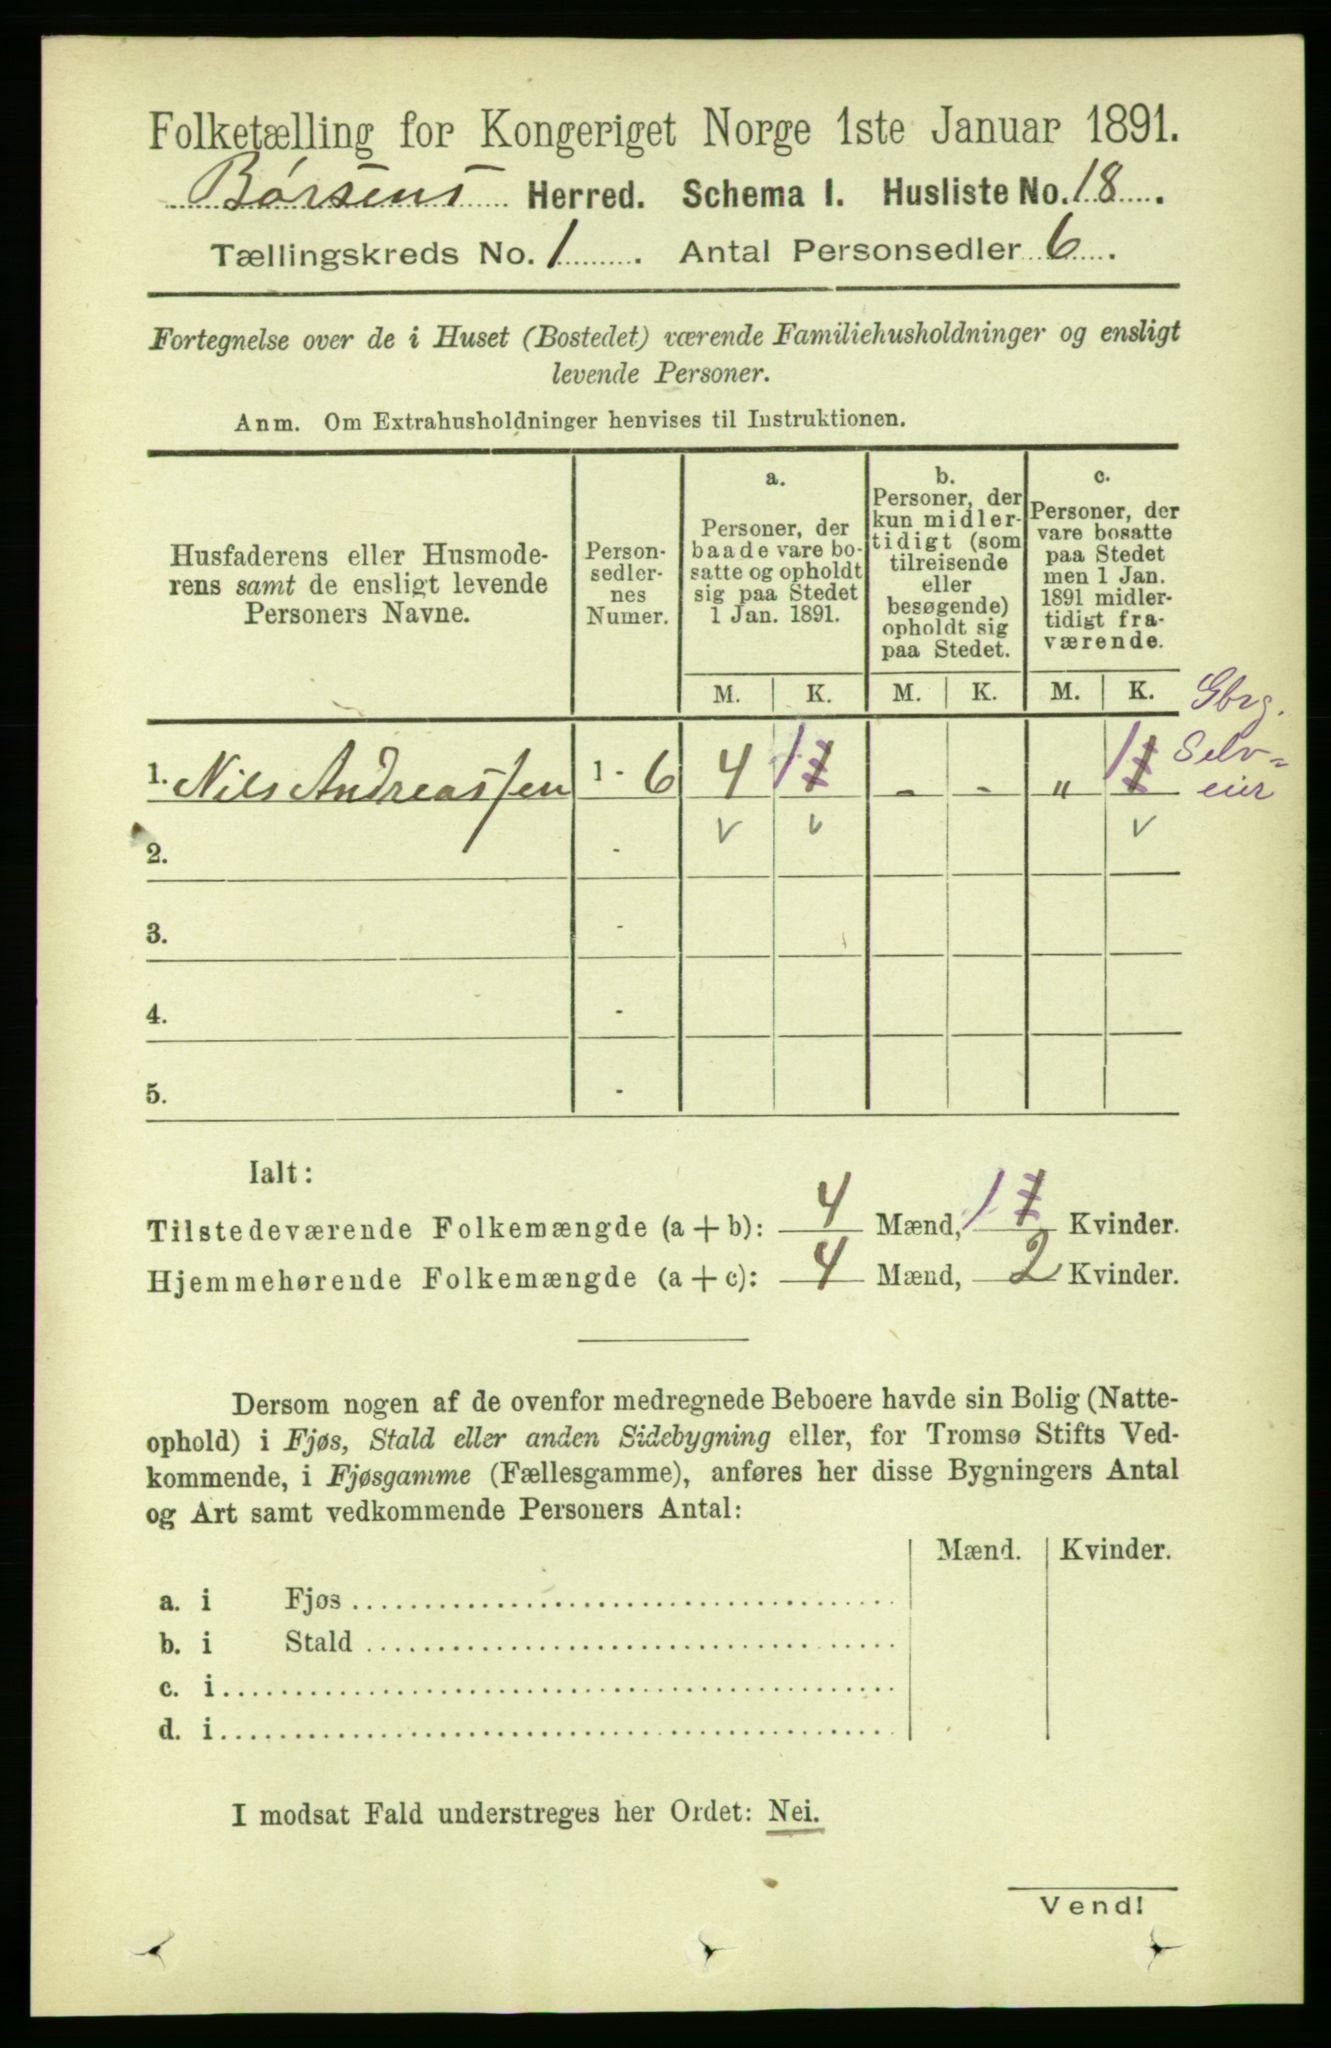 Folketælling for Kongeriget Norge 1ste Januar 1891.
Børsens Herred. Schema I. Husliste No. 18.
Tællingskreds No. 1. Antal Personsedler 6.
Fortegnelse over de i Huset (Bostedet) værende Familiehusholdninger og ensligt
levende Personer.
Anm. Om Extrahusholdninger henvises til Instruktionen.
Husfaderens eller Husmode-
rens samt de ensligt levende
Personers Navne.
Person-
sedler-
nes
Numer.
a.
Personer, der
baade vare bo-
satte og opholdt
sig paa Stedet
1 Jan. 1891.
b.
Personer, der
kun midler-
tidigt (som
tilreisende
eller
besøgende)
opholdt sig
paa Stedet.
c.
Personer, der
vare bosatte
paa Stedet
men 1 Jan.
1891 midler-
tidigt fra-
værende.
M. K. M. K. M. K.
Gbrg.
Selv-
eier
1. Nils Andreassen 1 - 6 4 1 - - " 1
2. -
3. -
4. -
5. -
Ialt:
Tilstedeværende Folkemængde (a + b): 4 Mænd, 1 Kvinder.
Hjemmehørende Folkemængde (a + c): 4 Mænd, 2 Kvinder.
Dersom nogen af de ovenfor medregnede Beboere havde sin Bolig (Natte-
ophold) i Fjøs, Stald eller anden Sidebygning eller, for Tromsø Stifts Ved-
kommende, i Fjøsgamme (Fællesgamme), anføres her disse Bygningers Antal
og Art samt vedkommende Personers Antal:
Mænd. Kvinder.
a. i Fjøs
b. i Stald
c. i
d. i
I modsat Fald understreges her Ordet: Nei.
Vend!